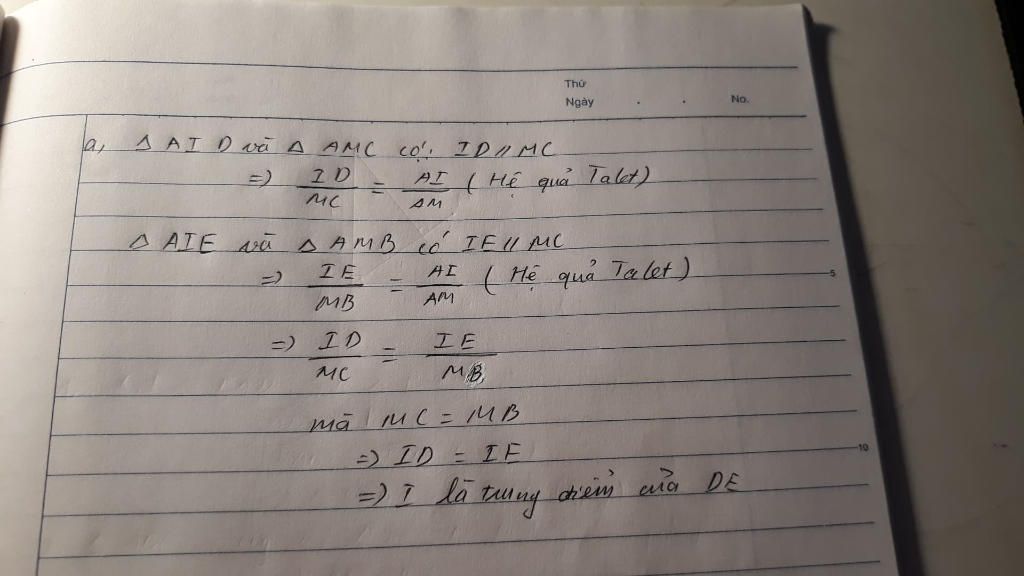 Thứ
Ngày . . No.
a, Δ AID và Δ AMC có: ID // MC
=) ID/MC = AI/AM ( Hệ quả Talet)
Δ AIE và Δ AMB có IE // MC
5
=) IE/MB = AI/AM ( Hệ quả Talet)
=) ID/MC = IE/MB
mà MC = MB
=) ID = IE
10
=) I là trung điểm của DE